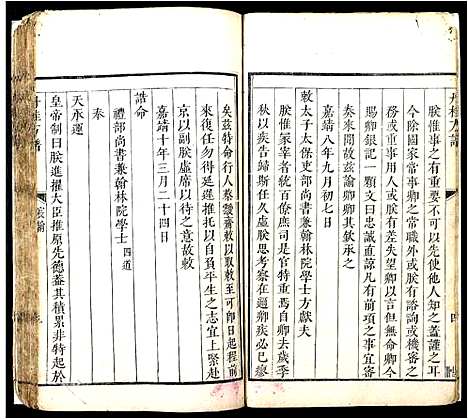 丹桂方譜
朕惟事之可否不可先使他人知之蓋謹之耳
今除國家常事卿之常職外或朕有諮詢或機
務或重事用人朕有差失望卿以言但無命卿今
賜卿銀記一顆文曰忠誠直諒凡有前項之事宜審
奏來聞故茲諭卿卿其欽承之
嘉靖八年九月初七日
敕太子太保吏部尚書兼翰林院學士方獻夫
朕惟冢宰者統百僚庶司是官特重焉自卿去歲季
秋以疾告歸斯任久虛朕思考察在邇卿疾必已愈
矣茲特命行人蔡靉齎敕以取敕至可卽日起程前
來復任勿得延遲推托以自負平生之志宜上緊赴
京以副朕虛席以待之意故敕
嘉靖十年三月二十四日
誥命
禮部尚書兼翰林院學士 四道
奉
天承運
皇帝制曰朕進擢大臣推原先德蓋其積累非特起於
丹桂方譜